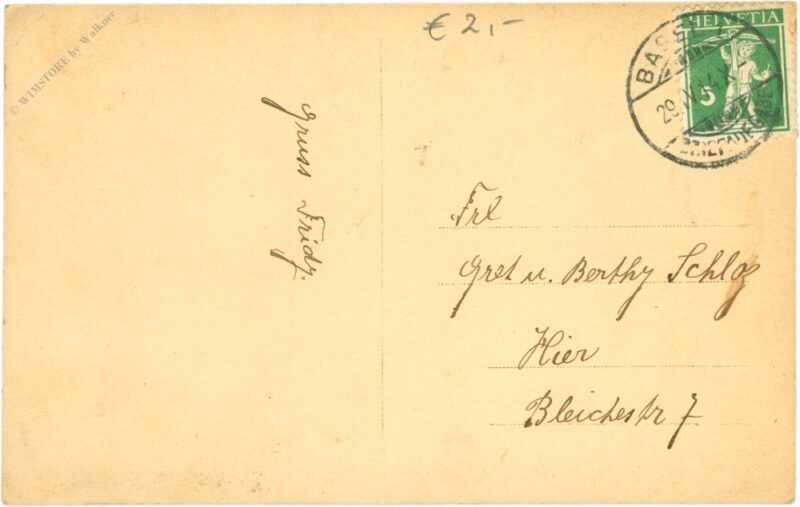 © WIMSTORE by Walkner
€ 2,-
HELVETIA
5
BASEL
29
BRIEFAUFG
Gruss Fridy.
Frl
Gret u. Berthy Schloz
Hier
Bleichestr 7